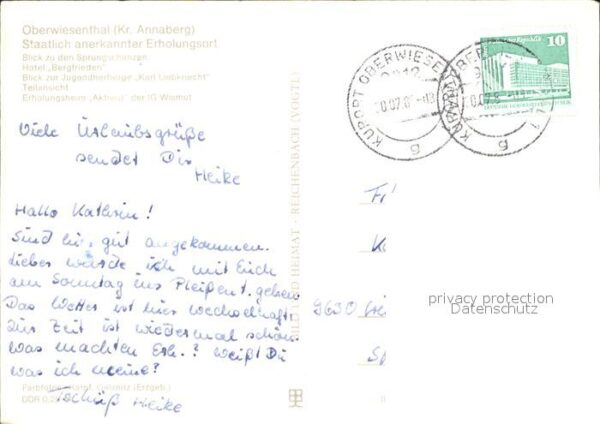 Oberwiesenthal (Kr. Annaberg)
Staatlich anerkannter Erholungsort
Blick zu den Sprungschanzen
Hotel „Bergfrieden"
Blick zur Jugendherberge „Karl Liebknecht"
Teilansicht
Erholungsheim „Aktivist" der IG Wismut
Viele Urlaubsgrüße
sendet Dir
Heike
Hallo Kathrin!
Sind hier gut angekommen.
Lieber würde ich mit Euch
am Sonntag ins Pleißent. gehen
Das Wetter ist hier wechselhaft.
Zur Zeit ist wiedermal schön.
Was machten Erh.? weißt Du
was ich meine?
Tschüß Heike
DDR
BILD UND HEIMAT REICHENBACH (VOGTL)
KURORT OBERWIESENTHAL
g
g
10
9630
privacy protection
Datenschutz